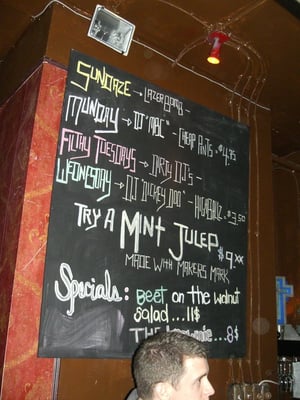 SUNDAZE → LAZER BOMB -
MUNDAY → DJ "MBC" - CHEAP PINTS $4.75
FILTHY TUESDAYS → DIRTY DJ'S -
WEDNESDAY → DJ DICKEY DOO - HIGHBALLZ $3.50
TRY A MINT JULEP $9.xx
MADE WITH MAKERS MARK
Specials: BEET on the walnut
salad...11$
THE 8$